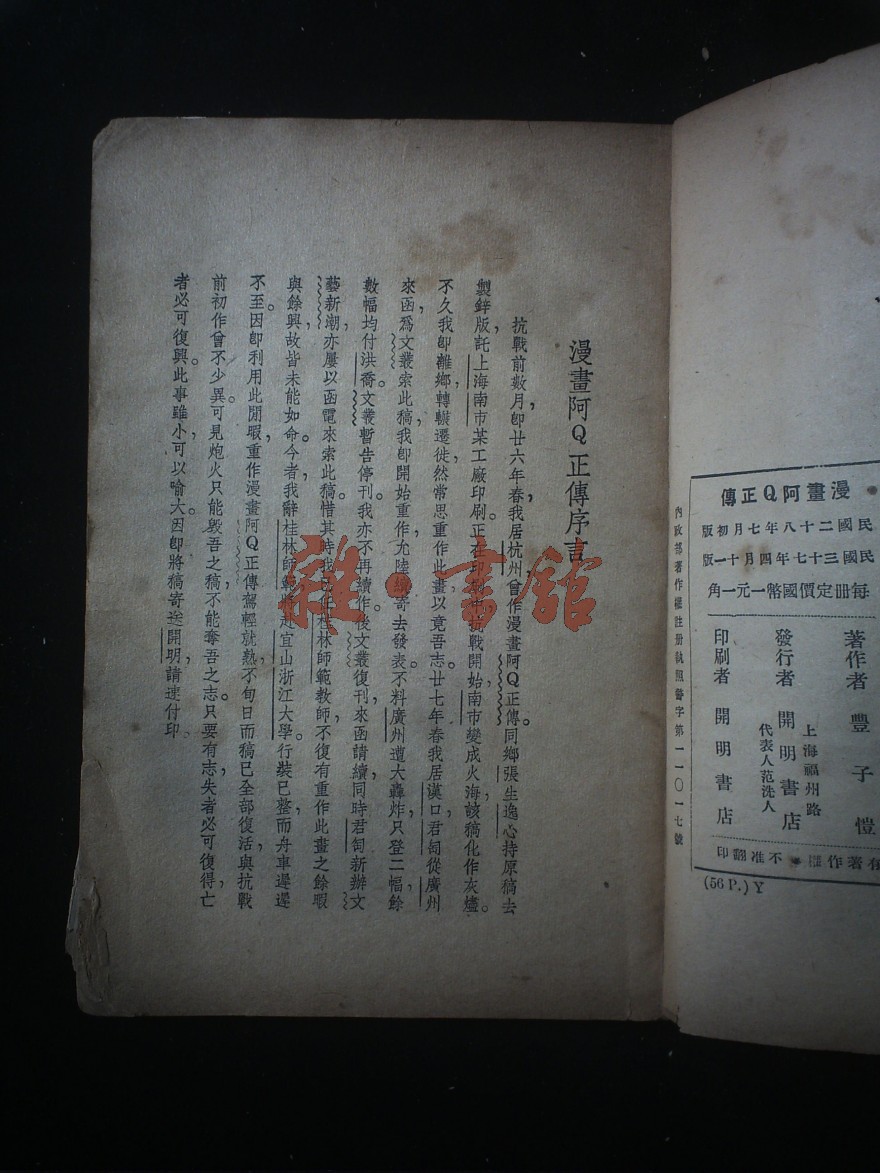 漫畫阿Q正傳序言
抗戰前數月,卽廿六年春,我居杭州,曾作漫畫阿Q正傳。同鄉張生逸心持原稿去
製鋅版,託上海南市某工廠印刷。正在印刷中,抗戰開始,南市變成火海,該稿化作灰燼。
不久我卽離鄉,轉輾遷徙,然常思重作此畫,以竟吾志。廿七年春,我居漢口,君匋從廣州
來函,爲文叢索此稿,我卽開始重作,允陸續寄去發表。不料廣州遭大轟炸,只登二幅,餘
數幅均付洪喬。文叢暫告停刊。我亦不再續作。後文叢復刊,來函請續,同時君匋新辦文
藝新潮,亦屢以函電來索此稿。惜其時我已任桂林師範教師,不復有重作此畫之餘暇
與餘興,故皆未能如命。今者,我辭桂林師範,將赴宜山浙江大學。行裝已整,而舟車遲遲
不至。因卽利用此閒暇,重作漫畫阿Q正傳。駕輕就熟,不旬日而稿已全部復活,與抗戰
前初作曾不少異。可見炮火只能毀吾之稿,不能奪吾之志。只要有志,失者必可復得,亡
者必可復興。此事雖小,可以喻大。因卽將稿寄送開明,請速付印。
漫畫阿Q正傳
民國二十八年七月初版
民國三十七年四月十一版
每冊定價國幣一元一角
著作者 豐子愷
發行者 開明書店
上海福州路
代表人范洗人
印刷者 開明書店
有著作權●不准翻印
(56 P.) Y
內政部著作權注册執照警字第一一〇一七號
雜·書館